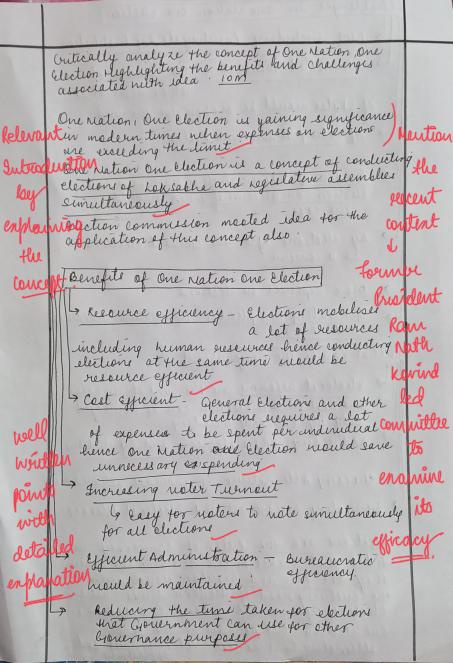 Critically analyze the concept of One Nation, One
Election Highlighting the benefits and challenges
associated with idea. 10M
One Nation, One Election is gaining significance
in modern times when expenses on elections
are exceeding the limit
One Nation One Election is a concept of conducting
elections of Loksabha and legislative assemblies
simultaneously
Election Commission mooted idea for the
application of this concept also.
Relevant
Introduction
by
explaining
the
concept
Mention
the
recent
content
↓
Former
President
Ram
Nath
Kovind
led
committee
to
examine
its
efficacy
Benefits of One Nation One Election
↳ Resource efficiency - Elections mobilises
a lot of resources
including human resources hence conducting
elections at the same time would be
resource efficient
→ Cost Efficient - General Elections and other
elections requires a lot
of expenses to be spent per individual
hence One Nation One Election would save
unnecessary spending
→ Increasing voter Turnout
↳ Easy for voters to vote simultaneously
for all elections
→ Efficient Administration - Bureaucratic
efficiency
would be maintained
→ Reducing the time taken for elections
that Government can use for other
Governance purposes
well
written
points
with
detailed
explanation